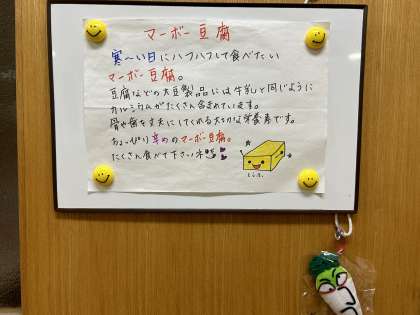 マーボー豆腐
寒〜い日にハフハフして食べたい
マーボー豆腐。
豆腐などの大豆製品には牛乳と同じように
カルシウムがたくさん含まれています。
骨や歯を丈夫にしてくれる大切な栄養素です。
ちょっぴり辛めのマーボー豆腐。
たくさん食べて下さいネ